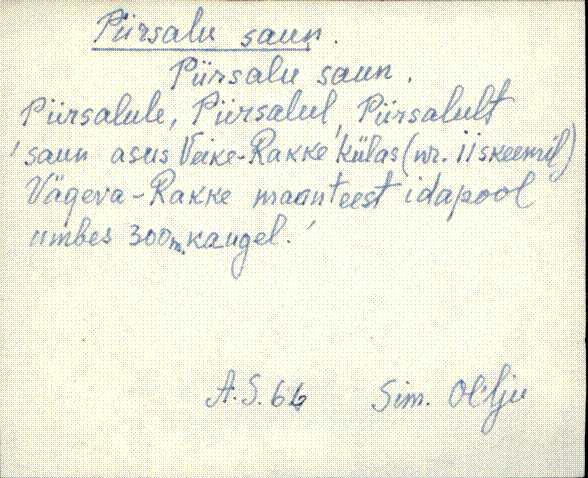 Piirsalu saun.
Piirsalu saun.
Piirsalule, Piirsalul, Piirsalult
'saun asus Veike-Rakke külas (nr. 11 skeemil)
Vägeva-Rakke maanteest idapool
umbes 300 m. kaugel.'
A.S. 66 Sim.